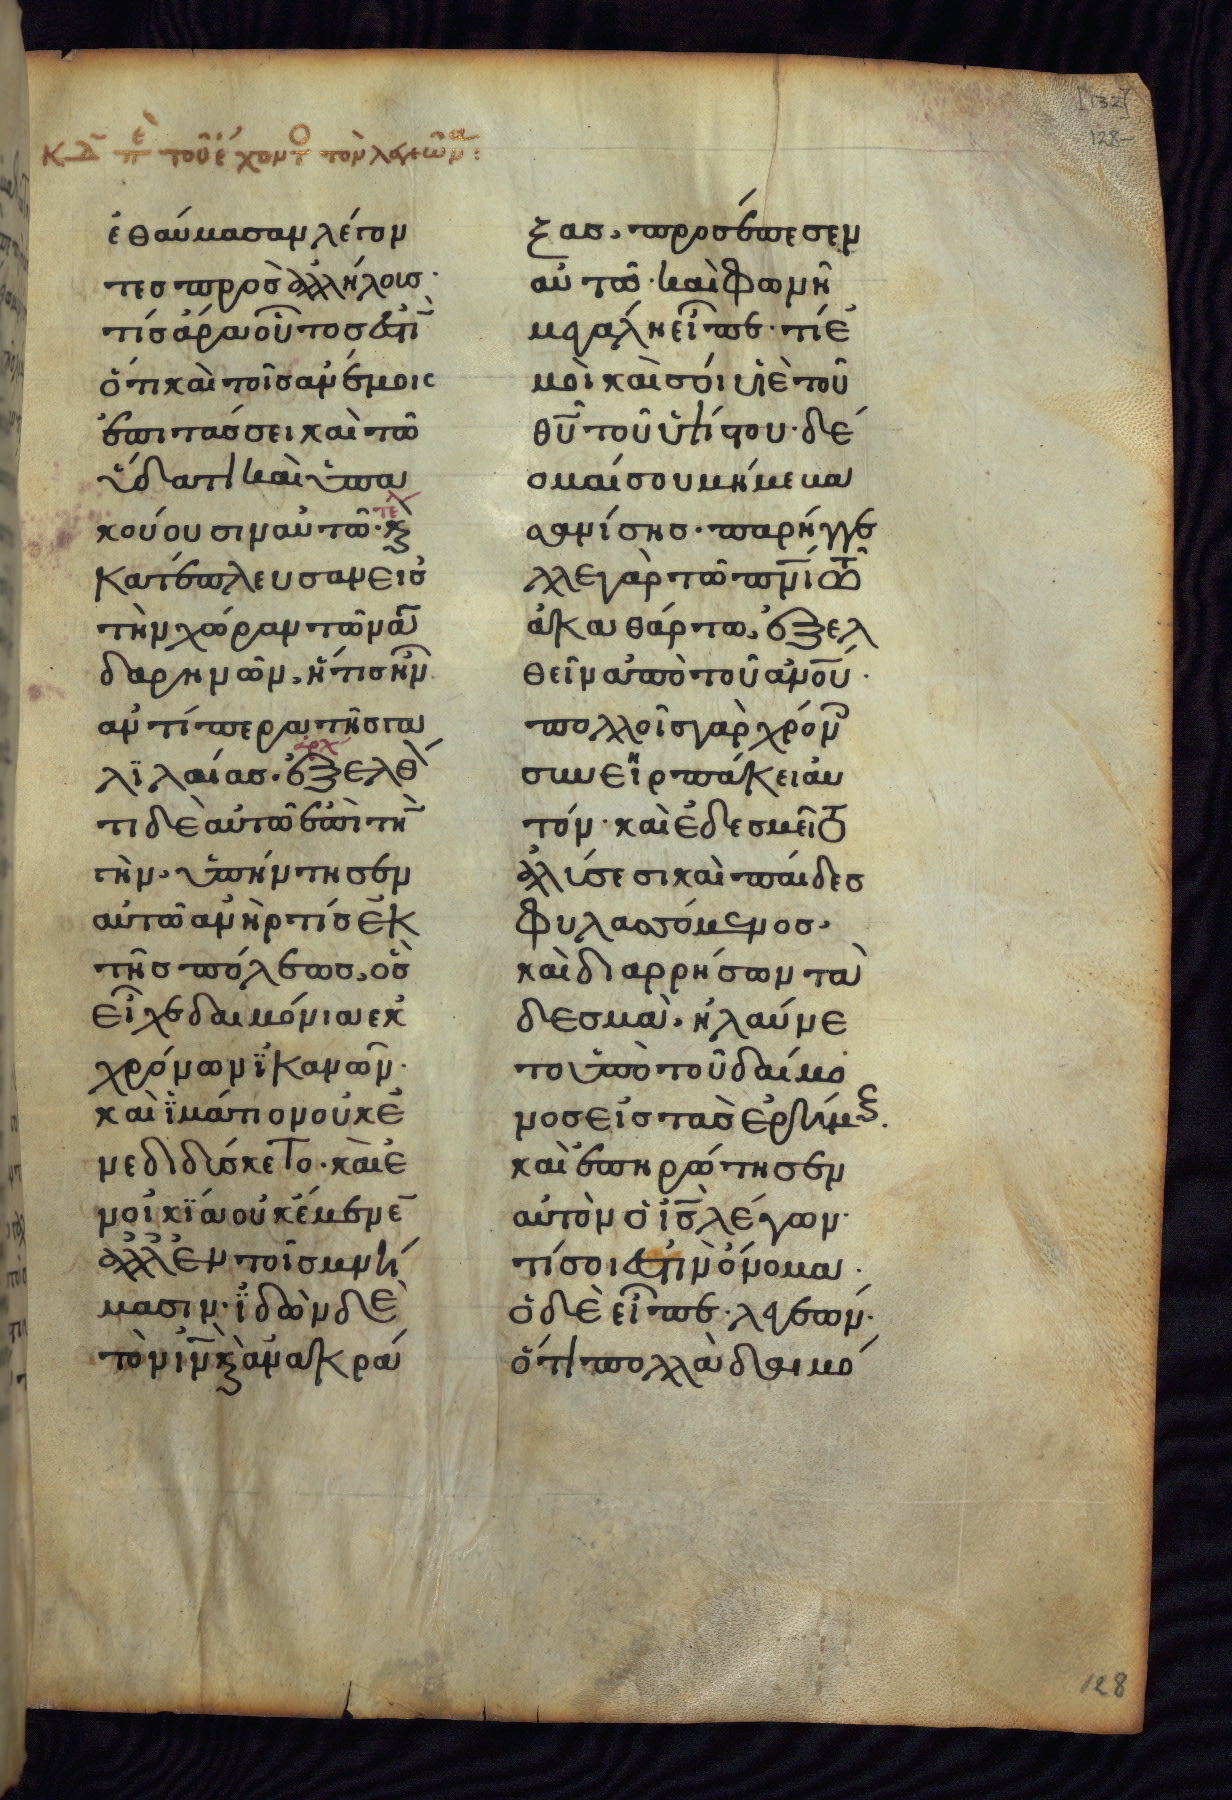 [132]
128
κδ πε τοῦ ἔχοντο τὸν λεγεῶνα:
ἐθαύμασαν λέγον
τες προς ἀλλήλους·
τίς ἄρα οὗτος ἐστὶ
ὅτι καὶ τοῖς ἀνέμοις
ἐπιτάσσει καὶ τῶ
ὕδατι καὶ ὑπα
κούουσιν αὐτῶ· κ
τε
κατέπλευσαν εἰς
τὴν χώραν τῶν γα
δαρηνῶν, ἥτις ἦν
ἀντίπερα τῆς γα
αρχ
λιλαίας· ἐξελθό
τι δὲ αὐτῶ ἐπὶ τὴ
γὴν, ὑπήντησεν
αὐτῶ ἀνήρ τίς ἐκ
τῆς πόλεως, ὃς
εἶχε δαιμόνια ἐκ
χρόνων ϊκανῶν·
καὶ ϊμάτιον οὐκ ἐ
νεδιδύσκετο· καὶ ἐ
ν οἰκία οὐκ ἔμενε
ἀλλ' ἐν τοῖς μνή
μασιν· ϊδὼν δὲ
τὸν ιν κ ἀνακρά
ξας, προσέπεσεν
αὐτῶ· καὶ φωνῆ
μεγάλη εἶπε· τί ἐ
μοὶ καὶ σοί υἱὲ τοῦ
θυ τοῦ ὑψίστου· δέ
ομαί σου μή με βα
σανίσης· παρήγγε
λλε γὰρ τῶ πνι τῶ
ἀκαθάρτω, ἐξελ
θεῖν ἀπὸ τοῦ ἀνου·
πολλοῖς γὰρ χρόν
συνηρπάκει αὐ
τόν· καὶ ἐδεσμεῖτο
ἁλύσεσι καὶ πέδες
φυλασσόμενος·
καὶ διαρρήσων τὰ
δεσμὰ, ἠλαύνε
το ὑπὸ τοῦ δαίμο
νος εἰς τὰς ἐρήμους.
καὶ ἐπηρώτησεν
αὐτὸν ὁ ις λέγων·
τί σοι ἐστὶν ὄνομα·
ὁ δὲ εἶπε· λεγεών·
ὅτι πολλὰ δαιμό
128